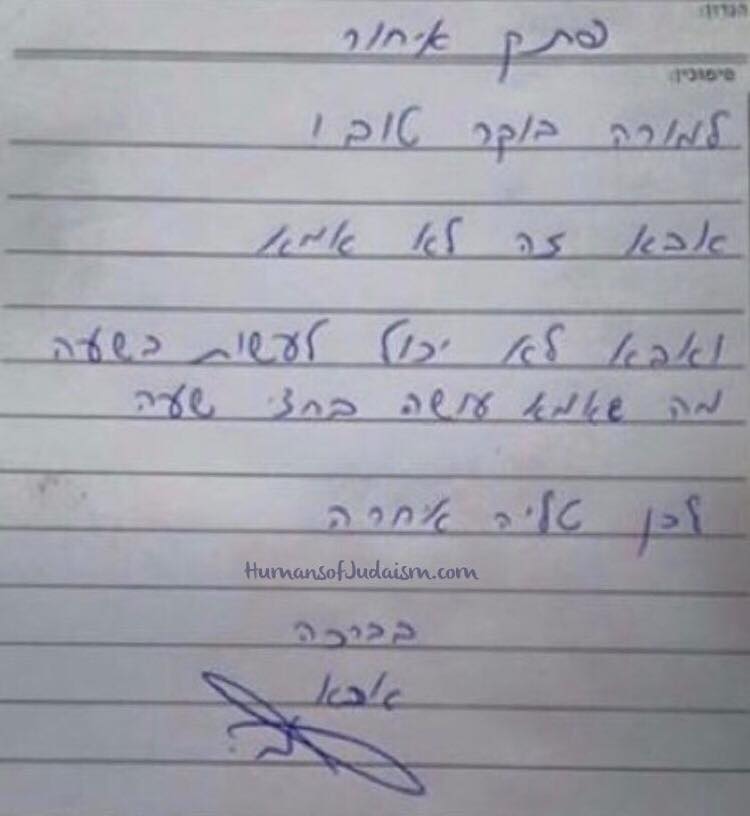 הנדון:
פתק איחור
סימוכין:
למורה בוקר טוב !
אבא זה לא אמא
ואבא לא יכול לעשות בשעה
מה שאמא עושה בחצי שעה
לכן טליה איחרה
HumansofJudaism.com
בברכה
אבא